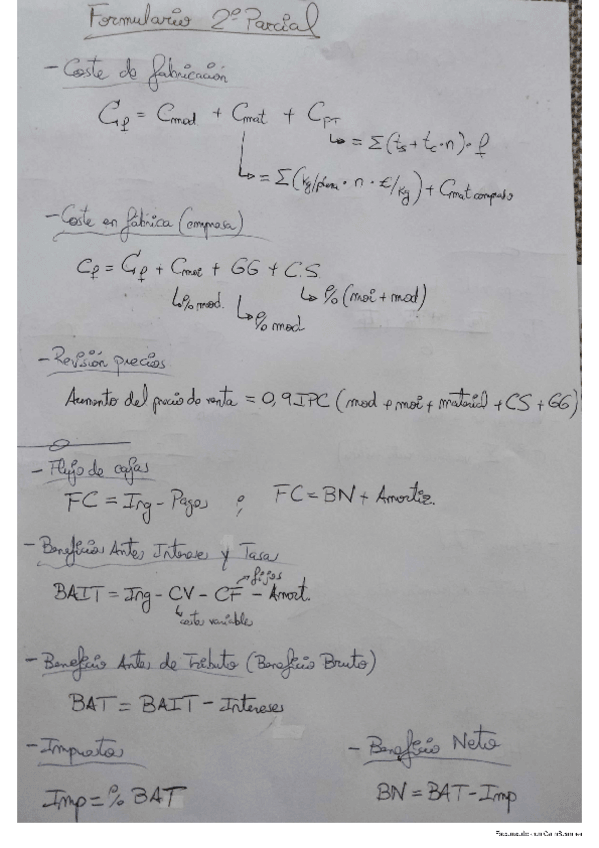 Formulario 2º Parcial
- Coste de fabricación
Cf = Cmod + Cmat + CPT
↳ = Σ(ts + tc · n) · f
↳ = Σ(kg/pieza · n · €/kg) + Cmat comprado
- Coste en fábrica (empresa)
Cf = Cf + Cmoi + GG + C.S
↳ % mod. ↳ % mod ↳ % (moi + mod)
- Revisión precios
Aumento del precio de venta = 0,9 IPC (mod + moi + material + CS + GG)
- Flujo de cajas
FC = Ing - Pagos ; FC = BN + Amortiz.
- Beneficio Antes Interese y Tasa
→ fijos
BAIT = Ing - CV - CF - Amort.
↳ coste variable
- Beneficio Antes de Tributo (Beneficio Bruto)
BAT = BAIT - Intereses
- Impuestos
- Beneficio Neto
Imp = % BAT
BN = BAT - Imp